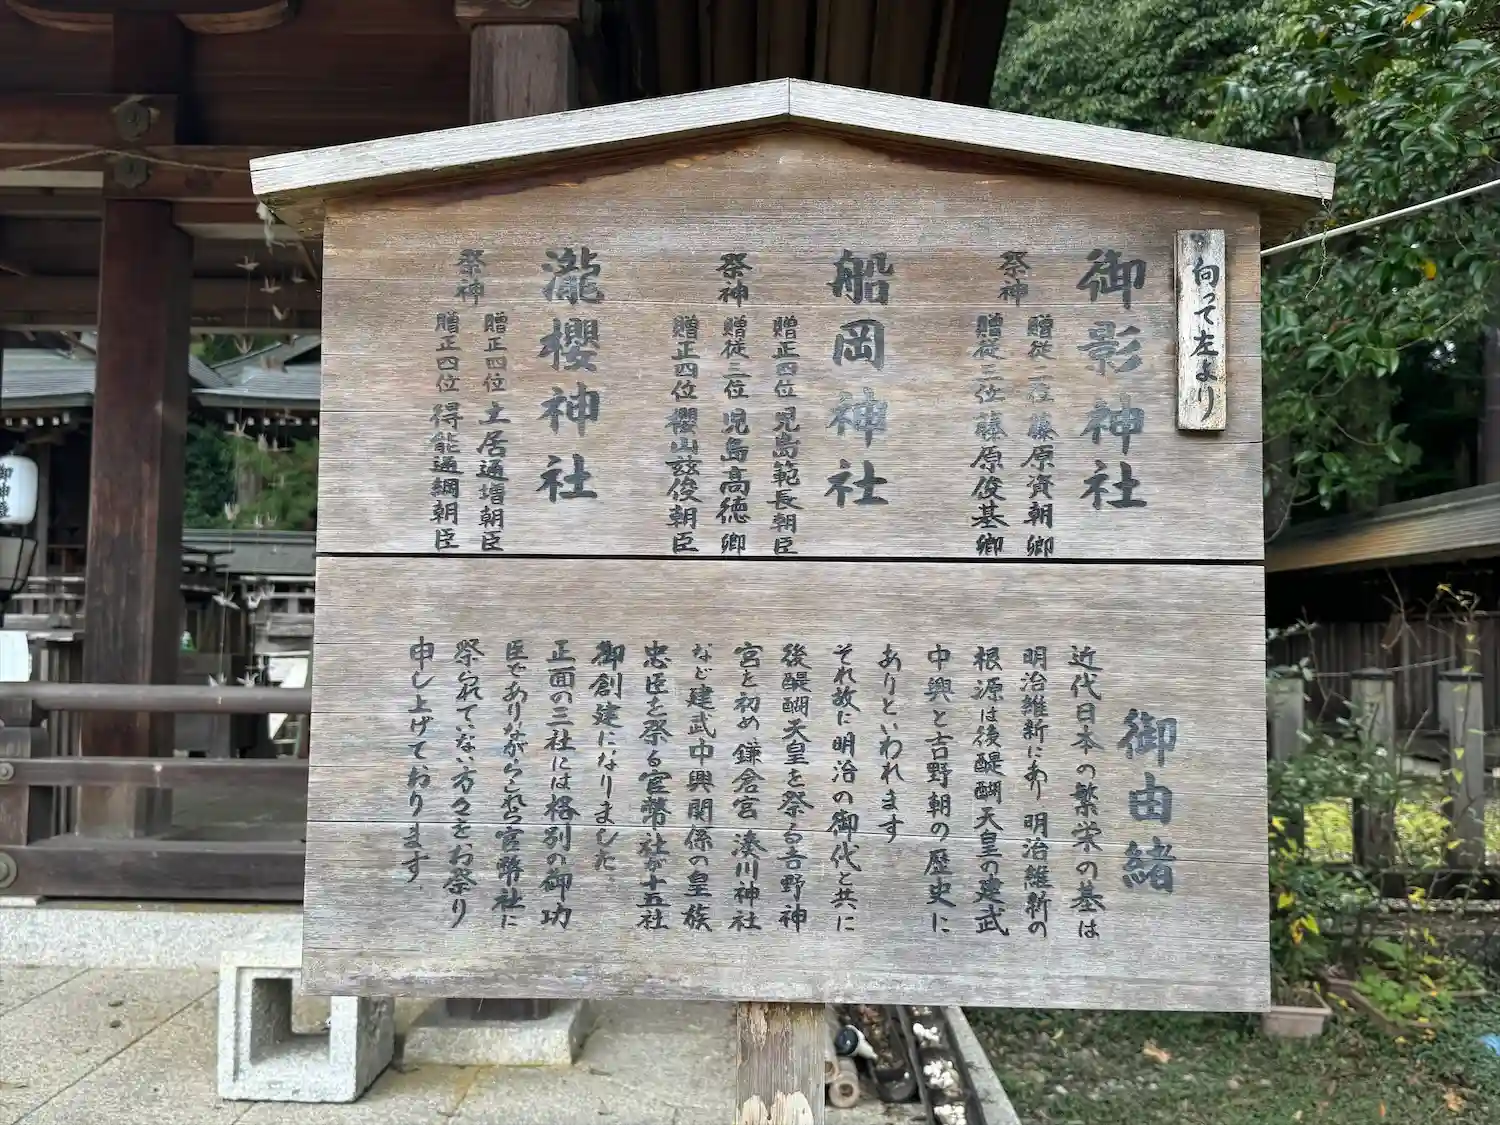 向って左より
御影神社
祭神
贈従二位 藤原資朝卿
贈従三位 藤原俊基卿
船岡神社
祭神
贈正四位 児島範長朝臣
贈従三位 児島高徳卿
贈正四位 櫻山茲俊朝臣
瀧櫻神社
祭神
贈正四位 土居通増朝臣
贈正四位 得能通綱朝臣
御由緒
近代日本の繁栄の基は
明治維新にあり 明治維新の
根源は後醍醐天皇の建武
中興と吉野朝の歴史に
ありといわれます
それ故に明治の御代と共に
後醍醐天皇を祭る吉野神
宮を初め鎌倉宮 湊川神社
など建武中興関係の皇族
忠臣を祭る官幣社が十五社
御創建になりました
正面の三社には格別の御功
臣でありながらこれら官幣社に
祭られていない方々をお祭り
申し上げております
御神燈